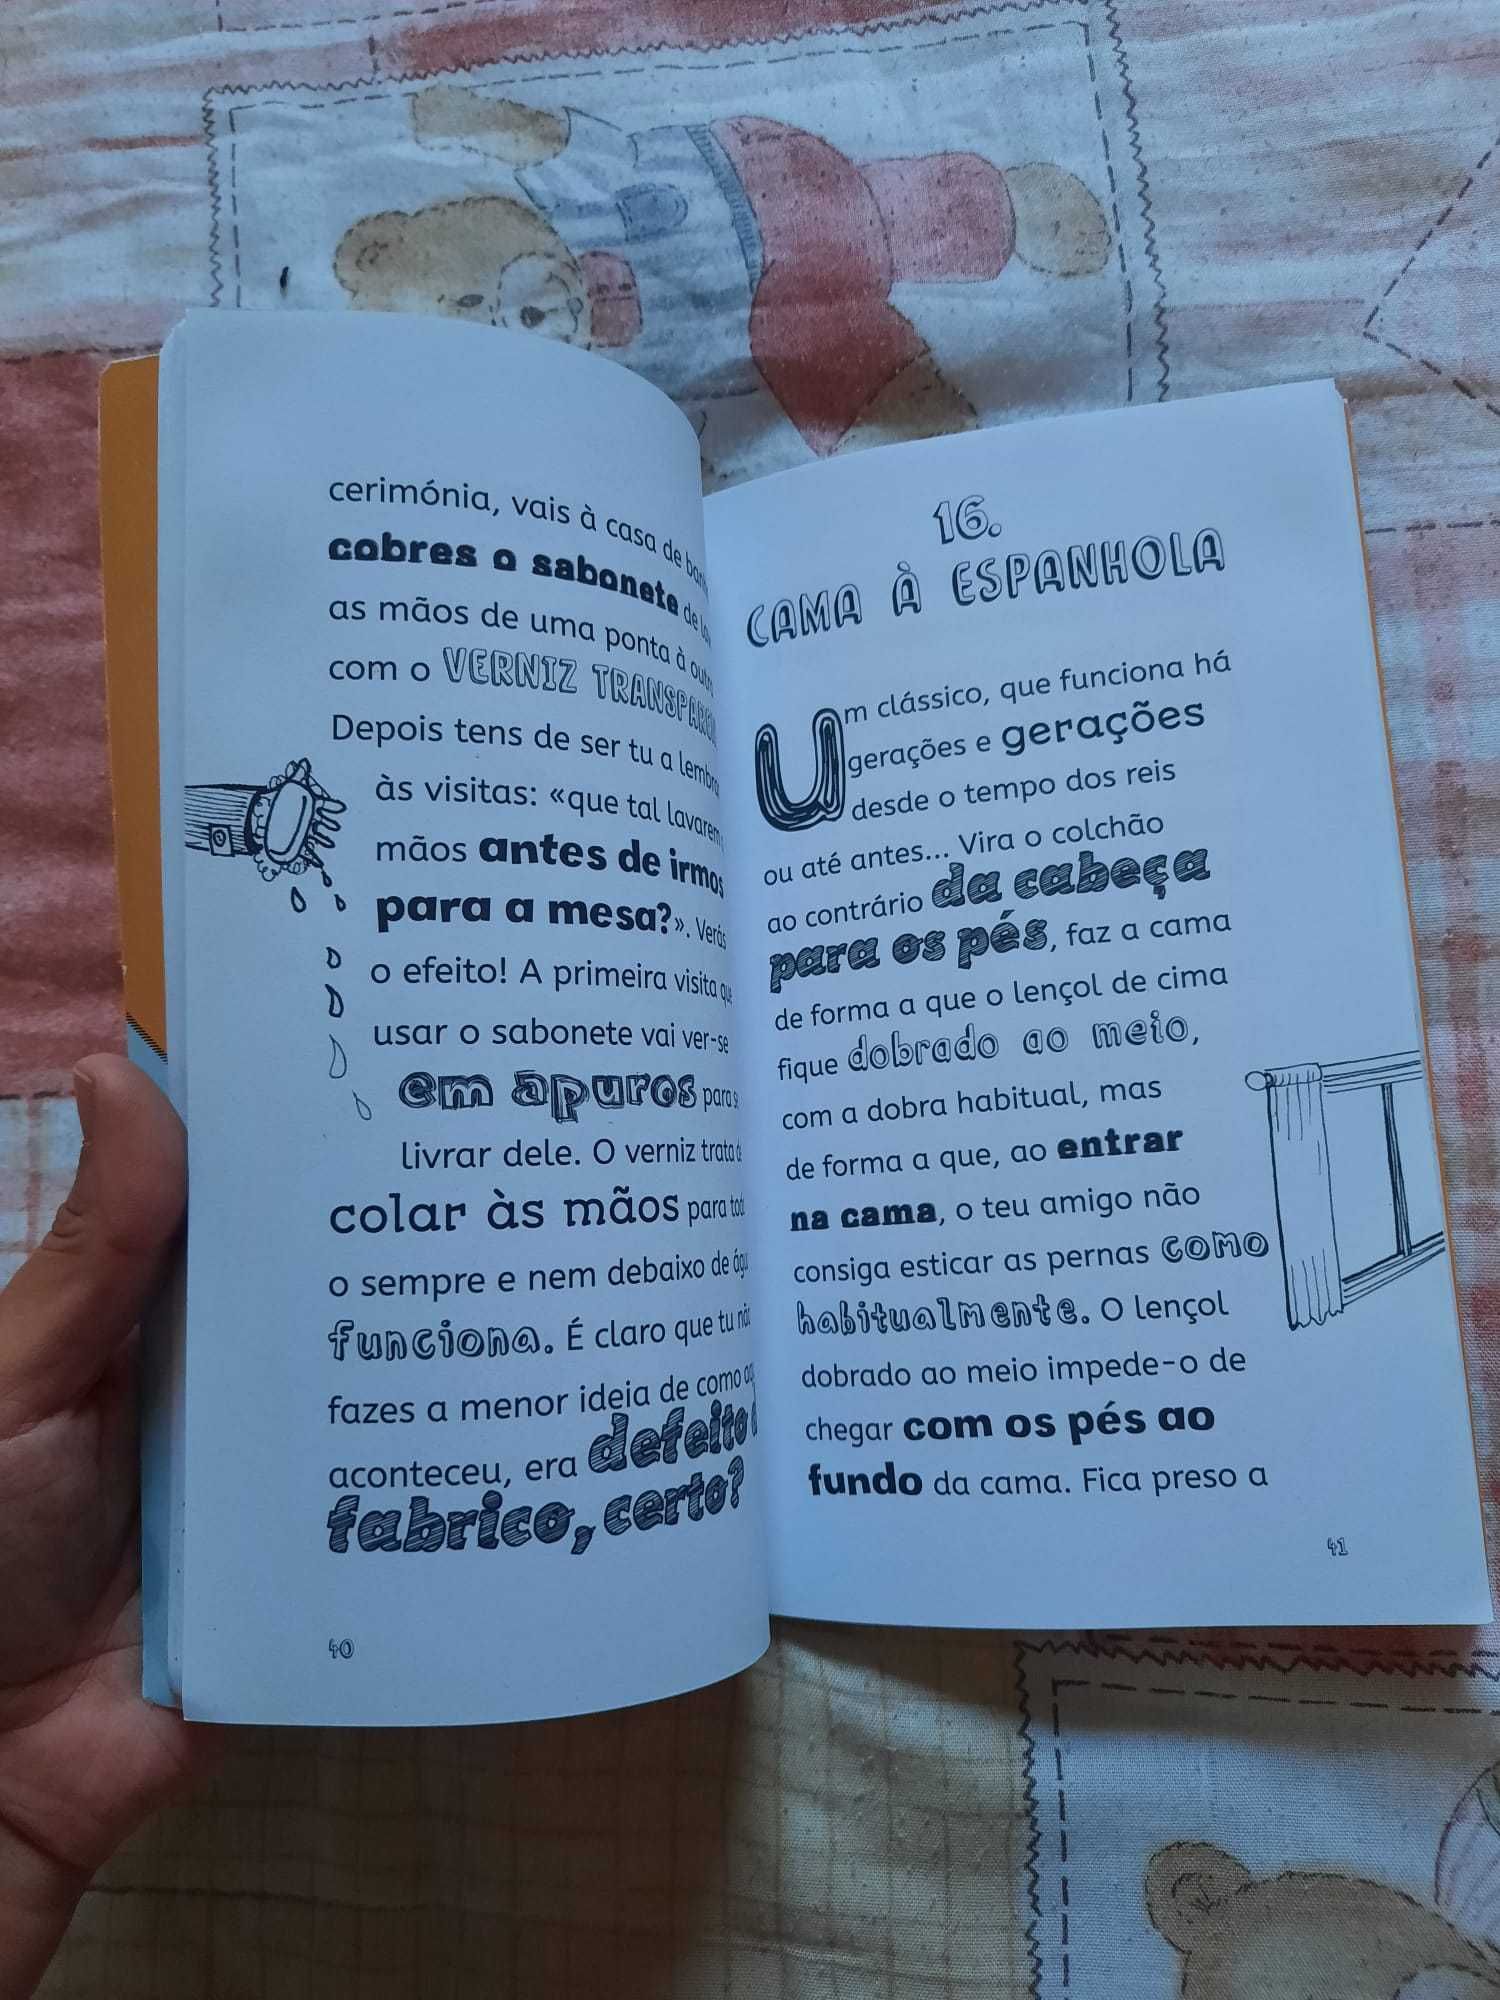 cerimónia, vais à casa de
cobres o sabonete de
as mãos de uma ponta à
com o VERNIZ
Depois tens de ser tu a
às visitas: «que tal
mãos antes de irmos
para a mesa?». Verás
o efeito! A primeira visita que
usar o sabonete vai ver-se
em apuros para
livrar dele. O verniz trata
colar às mãos para
o sempre e nem debaixo de
funciona. É claro que tu
fazes a menor ideia de como
aconteceu, era defeito
fabrico, certo?
40
16.
CAMA À ESPANHOLA
Um clássico, que funciona há
gerações e gerações
desde o tempo dos reis
ou até antes... Vira o colchão
ao contrário da cabeça
para os pés, faz a cama
de forma a que o lençol de cima
fique dobrado ao meio,
com a dobra habitual, mas
de forma a que, ao entrar
na cama, o teu amigo não
consiga esticar as pernas como
habitualmente. O lençol
dobrado ao meio impede-o de
chegar com os pés ao
fundo da cama. Fica preso a
41